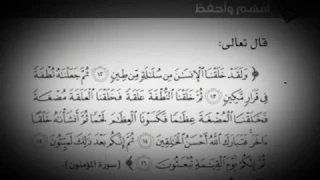 أفهم وأحفظ
قال تعالى:
﴿ وَلَقَدْ خَلَقْنَا ٱلْإِنسَٰنَ مِن سُلَٰلَةٍ مِّن طِينٍ ١٢ ثُمَّ جَعَلْنَٰهُ نُطْفَةً
فِى قَرَارٍ مَّكِينٍ ١٣ ثُمَّ خَلَقْنَا ٱلنُّطْفَةَ عَلَقَةً فَخَلَقْنَا ٱلْعَلَقَةَ مُضْغَةً
فَخَلَقْنَا ٱلْمُضْغَةَ عِظَٰمًا فَكَسَوْنَا ٱلْعِظَٰمَ لَحْمًا ثُمَّ أَنشَأْنَٰهُ خَلْقًا
ءَاخَرَ فَتَبَارَكَ ٱللَّهُ أَحْسَنُ ٱلْخَٰلِقِينَ ١٤ ثُمَّ إِنَّكُم بَعْدَ ذَٰلِكَ لَمَيِّتُونَ ١٥
ثُمَّ إِنَّكُمْ يَوْمَ ٱلْقِيَٰمَةِ تُبْعَثُونَ ١٦ ﴾ (سورة المؤمنون)